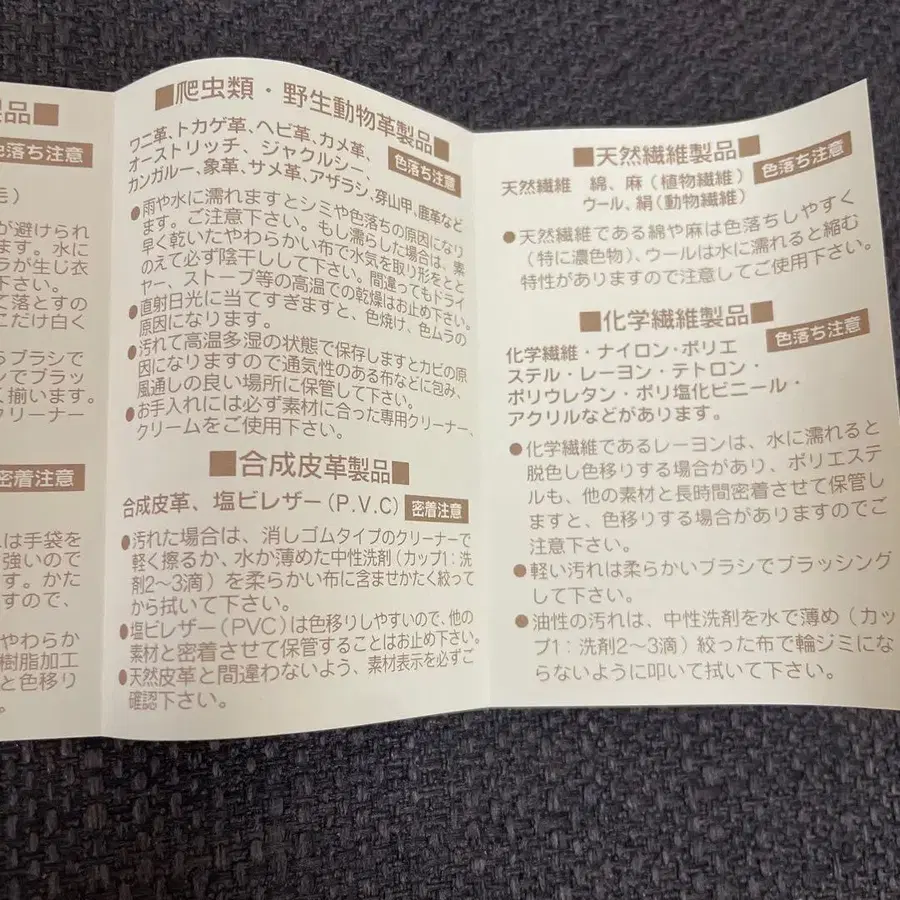 製品■
色落ち注意
毛）
が避けられ
ます。水に
ラが生じ衣
下さい。
て落とすの
こだけ白く
らブラシで
ンでブラッ
く揃います。
クリーナー
密着注意
は手袋を
強いので
す。かた
すので、
やわらか
樹脂加工
と色移り
。
■爬虫類・野生動物革製品■
ワニ革、トカゲ革、ヘビ革、カメ革、
オーストリッチ、ジャクルシー、
カンガルー、象革、サメ革、アザラシ、穿山甲、鹿革など
色落ち注意
●雨や水に濡れますとシミや色落ちの原因になり
ます。ご注意下さい。もし濡らした場合は、素
早く乾いたやわらかい布で水気を取り形をとと
のえて必ず陰干しして下さい。間違ってもドライ
ヤー、ストーブ等の高温での乾燥はお止め下さい。
●直射日光に当てすぎますと、色焼け、色ムラの
原因になります。
●汚れて高温多湿の状態で保存しますとカビの原
因になりますので通気性のある布などに包み、
風通しの良い場所に保管して下さい。
●お手入れには必ず素材に合った専用クリーナー、
クリームをご使用下さい。
■合成皮革製品■
合成皮革、塩ビレザー（P.V.C）
密着注意
●汚れた場合は、消しゴムタイプのクリーナーで
軽く擦るか、水か薄めた中性洗剤（カップ1：洗
剤2〜3滴）を柔らかい布に含ませかたく絞って
から拭いて下さい。
●塩ビレザー（PVC）は色移りしやすいので、他の
素材と密着させて保管することはお止め下さい。
●天然皮革と間違わないよう、素材表示を必ずご
確認下さい。
■天然繊維製品■
色落ち注意
天然繊維　綿、麻（植物繊維）
ウール、絹（動物繊維）
●天然繊維である綿や麻は色落ちしやすく
（特に濃色物）、ウールは水に濡れると縮む
特性がありますので注意してご使用下さい。
■化学繊維製品■
色落ち注意
化学繊維・ナイロン・ポリエ
ステル・レーヨン・テトロン・
ポリウレタン・ポリ塩化ビニール・
アクリルなどがあります。
●化学繊維であるレーヨンは、水に濡れると
脱色し色移りする場合があり、ポリエステ
ルも、他の素材と長時間密着させて保管し
ますと、色移りする場合がありますのでご
注意下さい。
●軽い汚れは柔らかいブラシでブラッシング
して下さい。
●油性の汚れは、中性洗剤を水で薄め（カッ
プ1：洗剤2〜3滴）絞った布で輪ジミにな
らないように叩いて拭いて下さい。